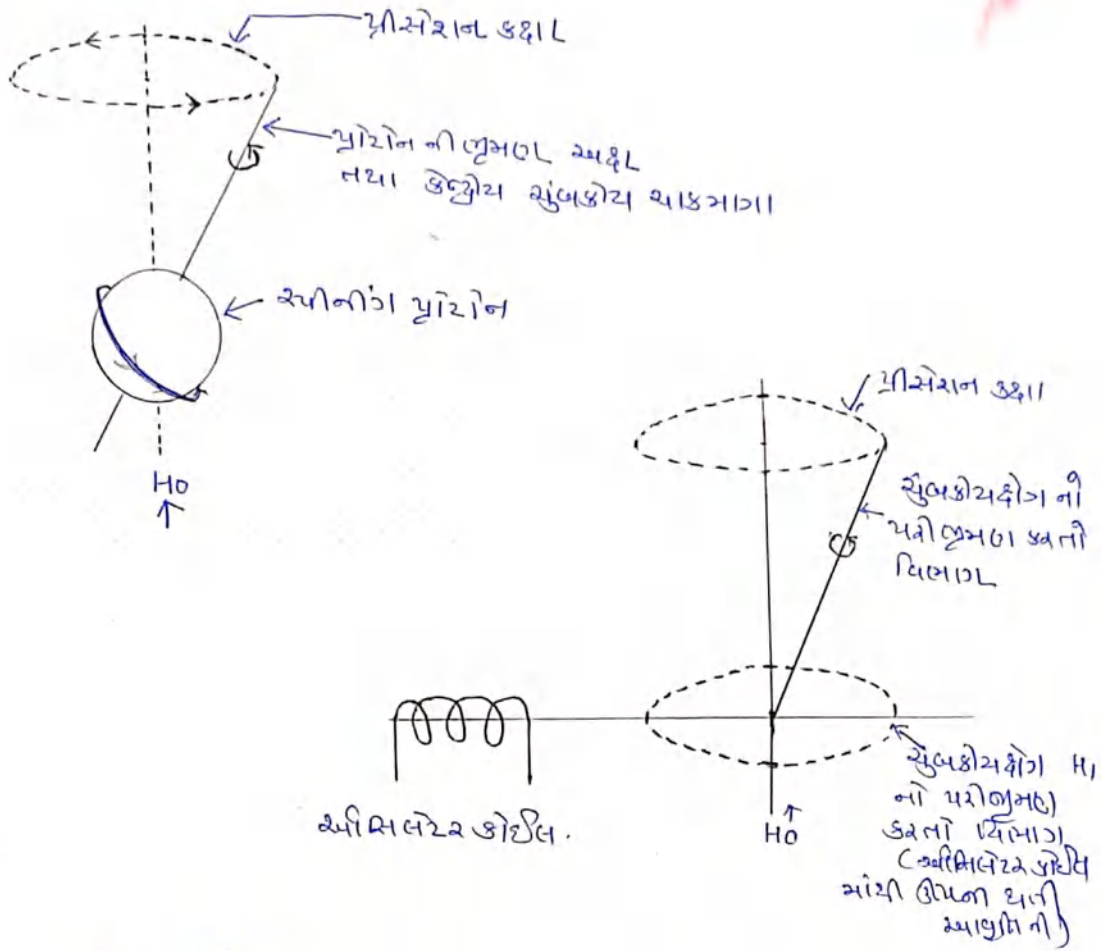 પ્રીસેશન કક્ષા
પ્રોટોન ની ભ્રમણ અક્ષ
તથા કેન્દ્રીય ચુંબકીય ચાકમાત્રા
સ્પીનીંગ પ્રોટોન
H0
પ્રીસેશન કક્ષા
ચુંબકીયક્ષેત્ર નો
પરીભ્રમણ કરતો
વિભાગ
ઓસિલેટર કોઈલ.
H0
ચુંબકીયક્ષેત્ર H1
નો પરીભ્રમણ
કરતો વિભાગ
(ઓસિલેટર કોઈલ
માંથી ઉત્પન્ન થતી
આવૃત્તિ ની)